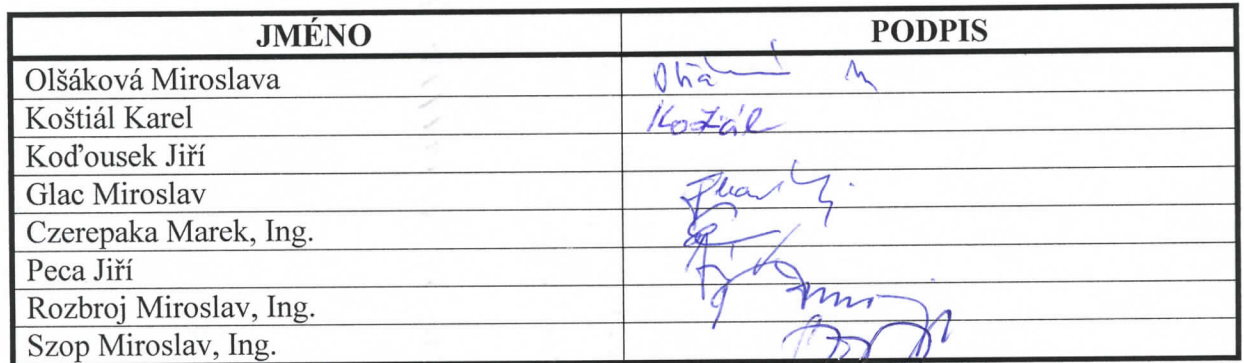 JMÉNO PODPIS
Olšáková Miroslava
Koštiál Karel Koštiál
Koďousek Jiří
Glac Miroslav
Czerepaka Marek, Ing.
Peca Jiří
Rozbroj Miroslav, Ing.
Szop Miroslav, Ing.